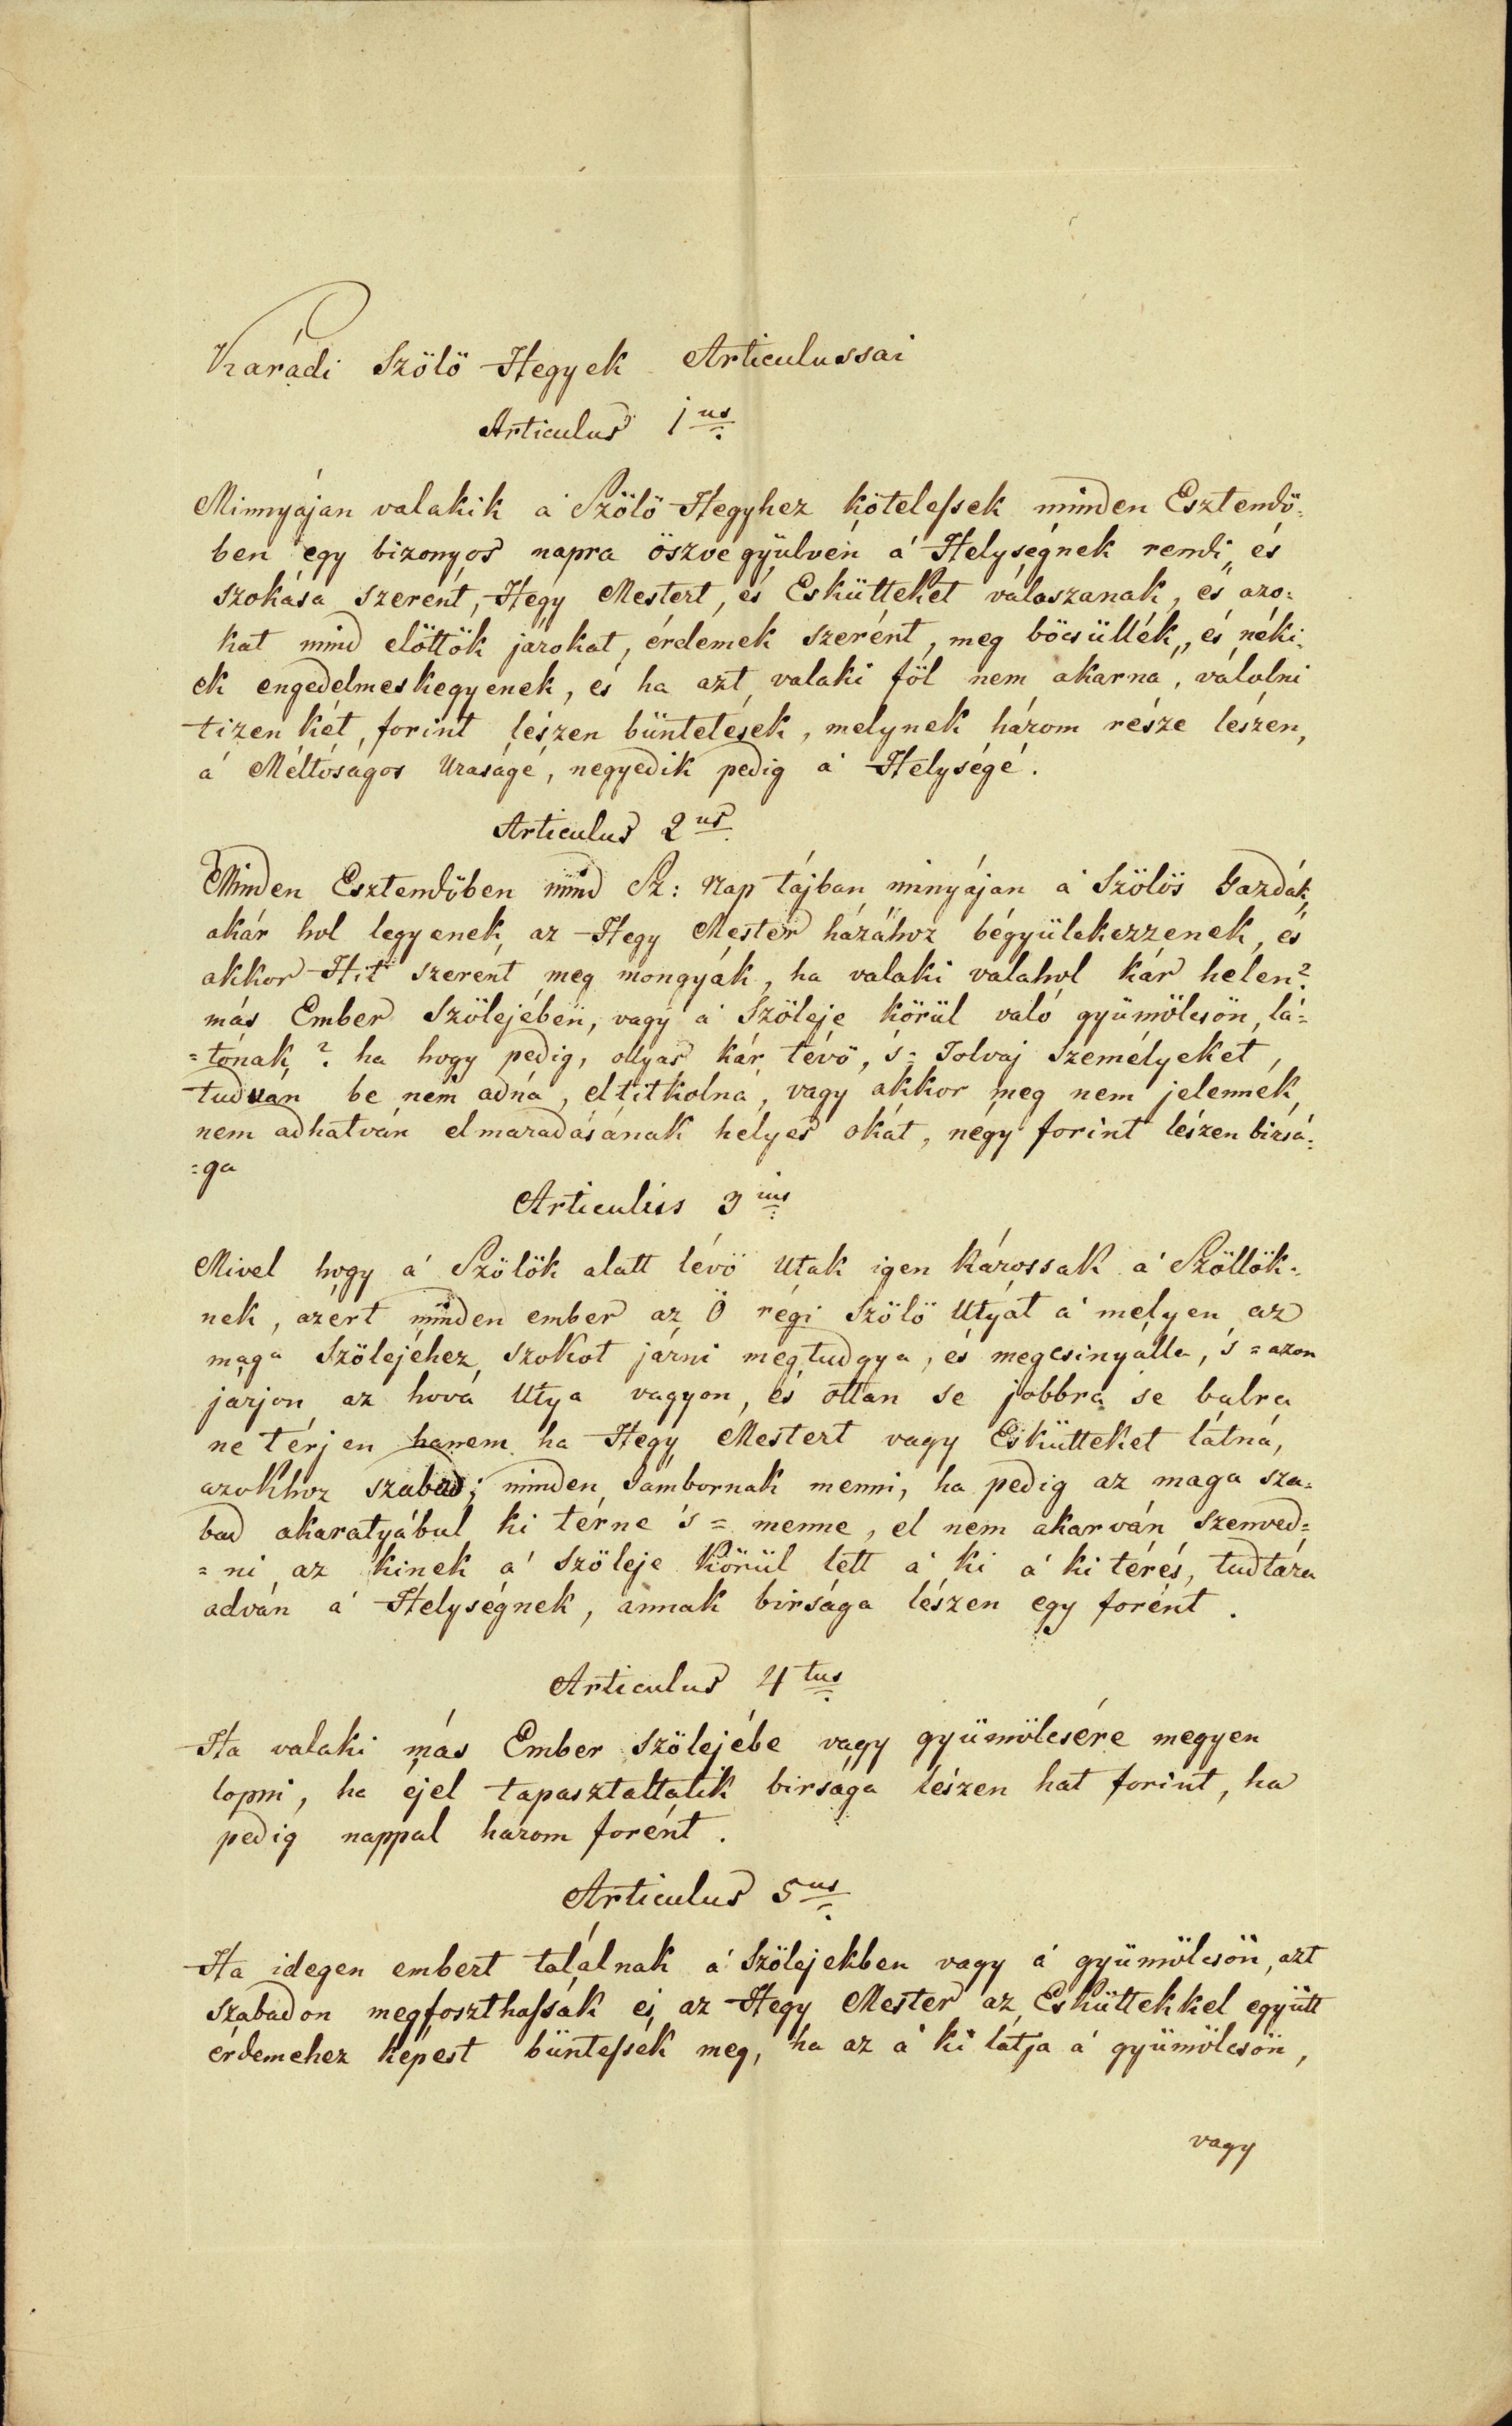 Karádi Szölö Hegyek Articulussai
Articulus 1us
Minnyájan valakik á Szölö Hegyhez kötelessek minden Esztendö:
ben egy bizonyos napra öszve gyülvén á Helységnek rendi, és
szokása szerént, Hegy Mestert, és Esküttekét válaszanak, és azo:
kat mind elöttök járokat, érdemek szerént, meg böcsüllék, és néki:
ek engedelmeskegyenek, és ha azt valaki föl nem akarná, válolni
tizen két, forint lészen büntetések, melynek három része lészen,
á Méltóságos Uraságé, negyedik pedig á Helységé.
Articulus 2us
Minden Esztendöben mind Sz: Nap tájban minyáján á Szölös Gazdák
akár hol legyenek, az Hegy Mester házához bégyülekezzenek, és
akkor Hit szerént meg mongyák, ha valaki valahol kár helen?
más Ember Szölejében, vagy á Szöleje körül való gyümölcsön, lá=
=tónak? ha hogy pedig, ollyas kár tévö, 's= Tolvaj Személyeket,
tudván be nem adna, eltitkolná, vagy akkor meg nem jelennék,
nem adhatván elmaradásának hélyes okát, négy forint lészen birsá:
=ga
Articulus 3ius
Mivel hogy á Szölök alatt lévö Utak igen károssak á Szöllök=
nek, azért minden ember az Ö régi Szölö Utyát á melyen az
maga Szölejéhez szokot járni megtudgya, és megcsinyálla, 's = azon
járjon az hová Utya vagyon, és ottan se jobbra se balra
ne térjen hanem ha Hegy Mestert vagy Esküttekét látná,
azokhoz szabad; minden Jámbornak menni, ha pedig az maga sza=
bad akaratyábul ki térne 's = menne, el nem akarván szenved=
=ni az kinek á Szöleje körül lett á ki á ki térés, tudtára
adván á Helységnek, annak birsága lészen egy forént.
Articulus 4tus
Ha valaki más Ember Szölejébe vagy gyümölcsére megyen
lopni, ha éjel tapasztaltatik birsága lészen hat forint, ha
pedig nappal harom forént.
Articulus 5us
Ha idegen embert találnak á Szölejekben vagy á gyümölcsön, azt
Szabadon megfoszthassák és az Hegy Mester az Esküttekkel együtt
érdemehez képest büntessék meg, ha az á ki látja á gyümölcsön,
vagy